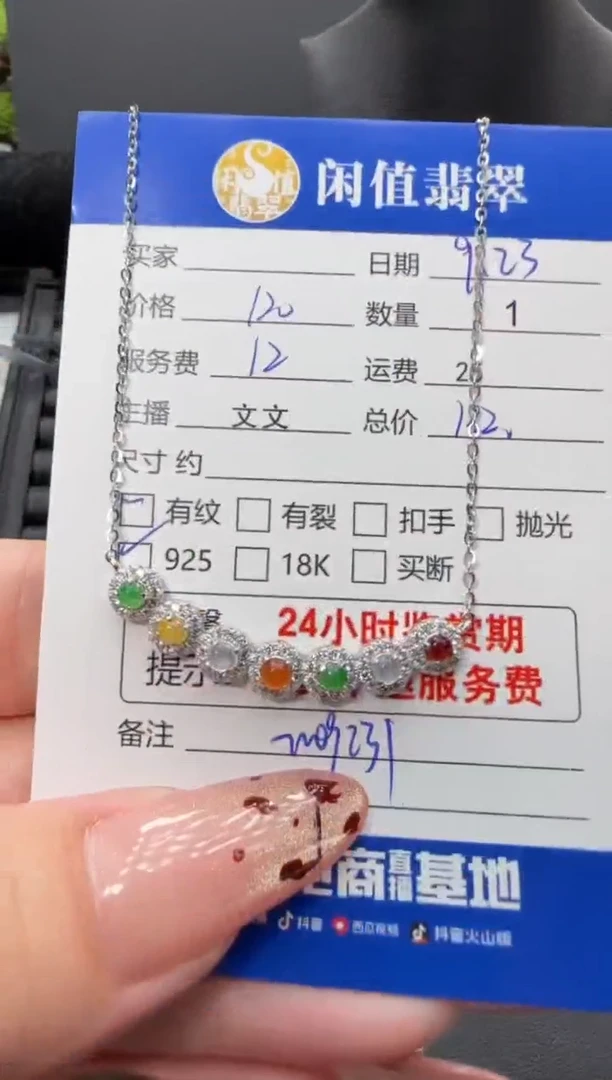 闲值翡翠
买家
日期 9.23
价格 120
数量 1
服务费 12
运费
主播 文文
总价
尺寸 约
有纹 有裂 扣手 抛光
925 18K 买断
24小时鉴赏期
提示
服务费
备注
电商直播基地
抖音 西瓜视频 抖音火山版